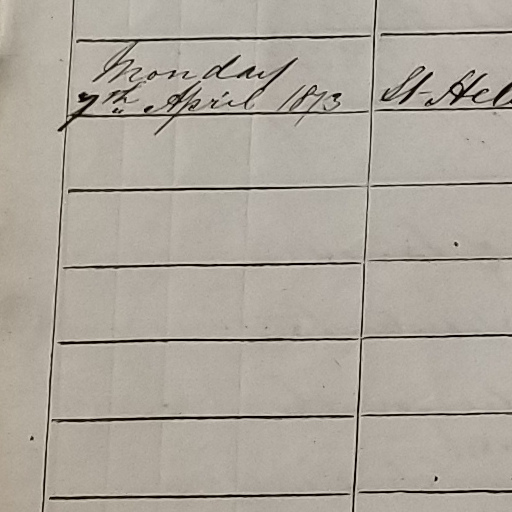 Monday
7th April 1873 St Hel